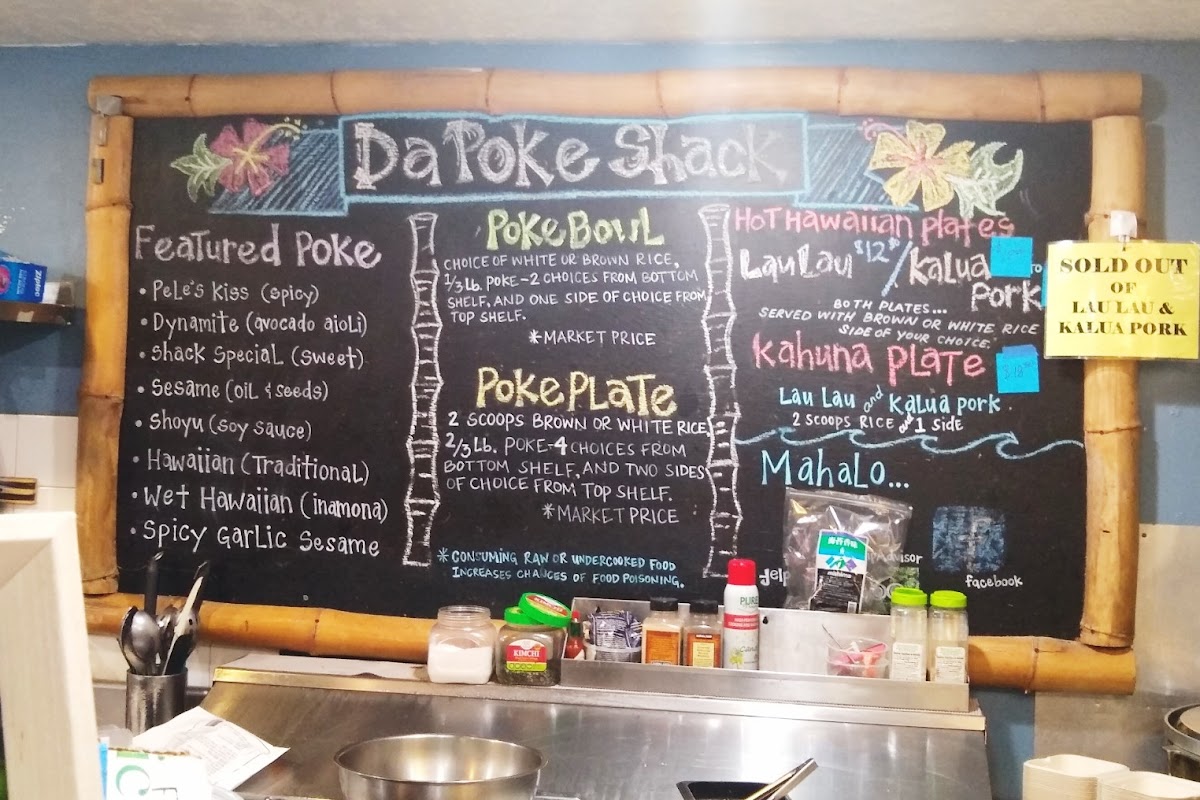 Da Poke Shack
Featured Poke
• Pele's Kiss (spicy)
• Dynamite (avocado aioli)
• Shack Special (sweet)
• Sesame (oil & seeds)
• Shoyu (soy sauce)
• Hawaiian (Traditional)
• Wet Hawaiian (inamona)
• Spicy Garlic Sesame
Poke Bowl
CHOICE OF WHITE OR BROWN RICE,
1/3 Lb. POKE-2 CHOICES FROM BOTTOM
SHELF, AND ONE SIDE OF CHOICE FROM
TOP SHELF.
*MARKET PRICE
Poke Plate
2 SCOOPS BROWN OR WHITE RICE
2/3 Lb. POKE-4 CHOICES FROM
BOTTOM SHELF, AND TWO SIDES
OF CHOICE FROM TOP SHELF.
*MARKET PRICE
* CONSUMING RAW OR UNDERCOOKED FOOD
INCREASES CHANCES OF FOOD POISONING.
Hot Hawaiian Plates
Lau Lau / Kalua
Pork
BOTH PLATES...
SERVED WITH BROWN OR WHITE RICE
SIDE OF YOUR CHOICE.
Kahuna Plate
Lau Lau and Kalua pork
2 SCOOPS RICE and 1 Side
Mahalo...
facebook
SOLD OUT
OF
LAU LAU &
KALUA PORK
Ziploc
KIMCHI
PURE